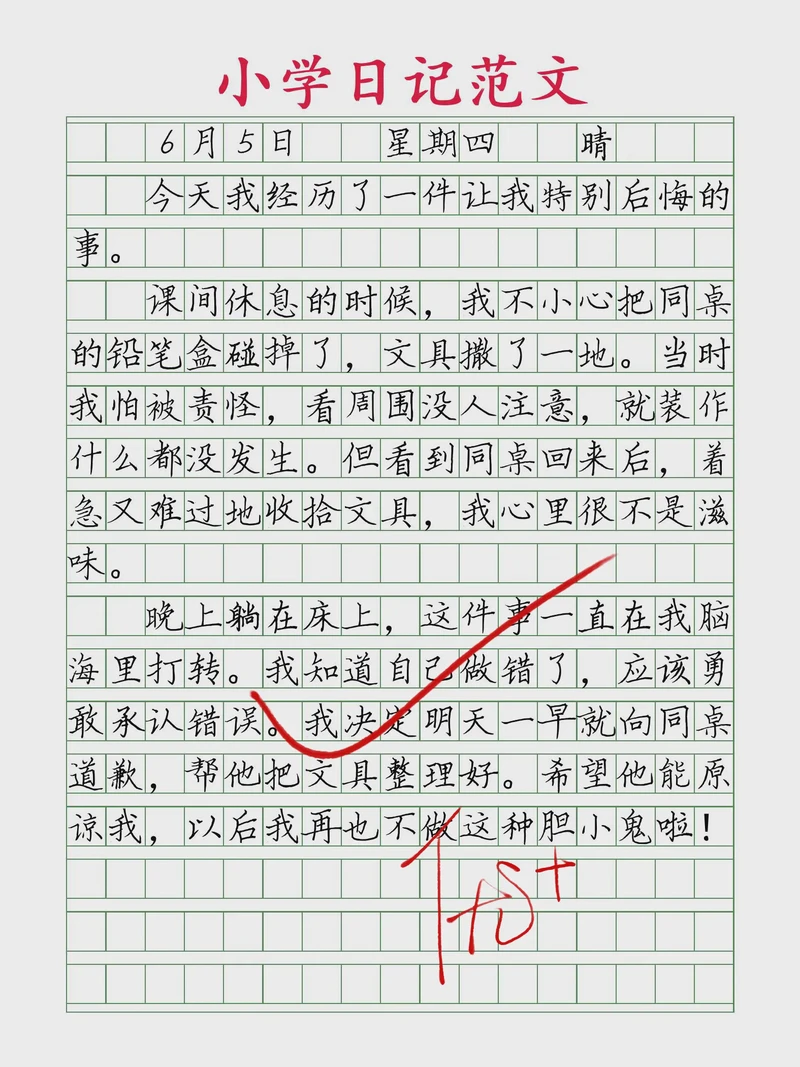 小学日记范文
6月5日 星期四 晴
今天我经历了一件让我特别后悔的
事。
课间休息的时候，我不小心把同桌
的铅笔盒碰掉了，文具撒了一地。当时
我怕被责怪，看周围没人注意，就装作
什么都没发生。但看到同桌回来后，着
急又难过地收拾文具，我心里很不是滋
味。
晚上躺在床上，这件事一直在我脑
海里打转。我知道自己做错了，应该勇
敢承认错误。我决定明天一早就向同桌
道歉，帮他把文具整理好。希望他能原
谅我，以后我再也不做这种胆小鬼啦！
优+